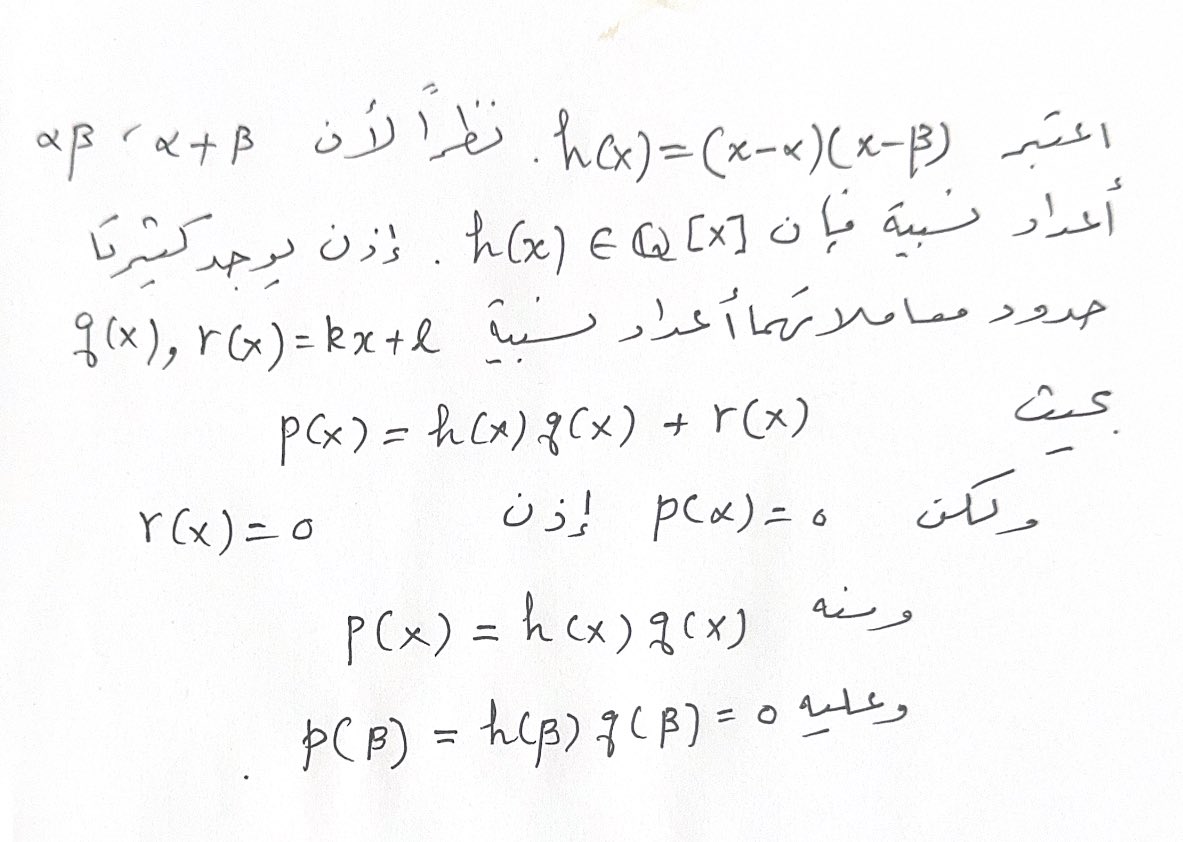 اعتبر h(x)=(x-α)(x-β). نظراً لأن α+β، αβ
أعداد نسبية فإن h(x) ∈ ℚ[x]. إذن يوجد كثيرتا
حدود معاملاتهما أعداد نسبية q(x), r(x)=kx+l
بحيث p(x) = h(x) q(x) + r(x)
ولكن p(α)=0 إذن r(x)=0
ومنه p(x) = h(x) q(x)
وعليه p(β) = h(β) q(β) = 0 .